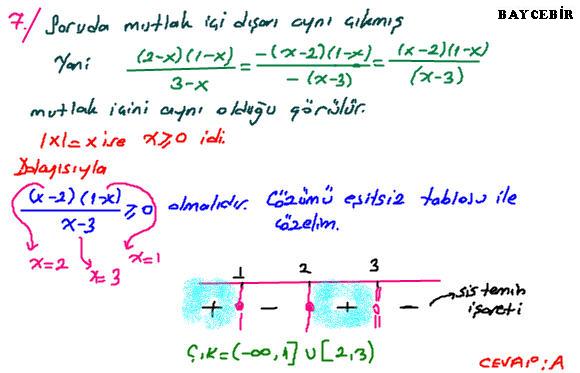 BAYCEBİR
7./ Soruda mutlak içi dışarı aynı çıkmış
Yani (2-x)(1-x)/3-x = -(x-2)(1-x)/-(x-3) = (x-2)(1-x)/(x-3)
mutlak içini aynı olduğu görülür.
|x|=x ise x⩾0 idi.
Dolayısıyla
(x-2)(1-x)/x-3 ⩾0 olmalıdır. Çözümü eşitsiz tablosu ile
çözelim.
x=2 x=3 x=1
1 2 3
+ - + - sistemin
işareti
Ç.K=(-∞,1] ∪ [2,3)
CEVAP:A